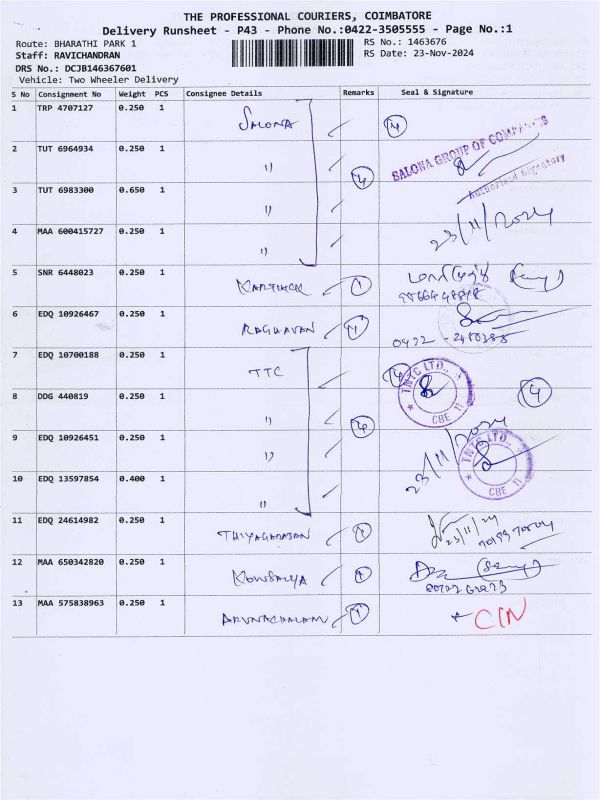 THE PROFESSIONAL COURIERS, COIMBATORE
Delivery Runsheet - P43 - Phone No.:0422-3505555 - Page No.:1
Route: BHARATHI PARK 1 RS No.: 1463676
Staff: RAVICHANDRAN RS Date: 23-Nov-2024
DRS No.: DCJB146367601
Vehicle: Two Wheeler Delivery
S No Consignment No Weight PCS Consignee Details Remarks Seal & Signature
1 TRP 4707127 0.250 1 SALONA 4
2 TUT 6964934 0.250 1 " 4 SALONA GROUP OF COMPANIES
Authorised Signatory
3 TUT 6983300 0.650 1 "
23/11/2024
4 MAA 600415727 0.250 1 "
5 SNR 6448023 0.250 1 KARTHICK 1
6 EDQ 10926467 0.250 1 RAGHAVAN 1
7 EDQ 10700188 0.250 1 TTC 4 TNTC LTD., CBE 11
8 DDG 440819 0.250 1 " 4 4
9 EDQ 10926451 0.250 1 " 23/11/2024 TNTC LTD., CBE 11
10 EDQ 13597854 0.400 1 "
11 EDQ 24614982 0.250 1 THIYAGARAJAN 1 23/11/24
12 MAA 650342820 0.250 1 KOWSALYA 1
13 MAA 575838963 0.250 1 ARUNACHALAM 1 CIN